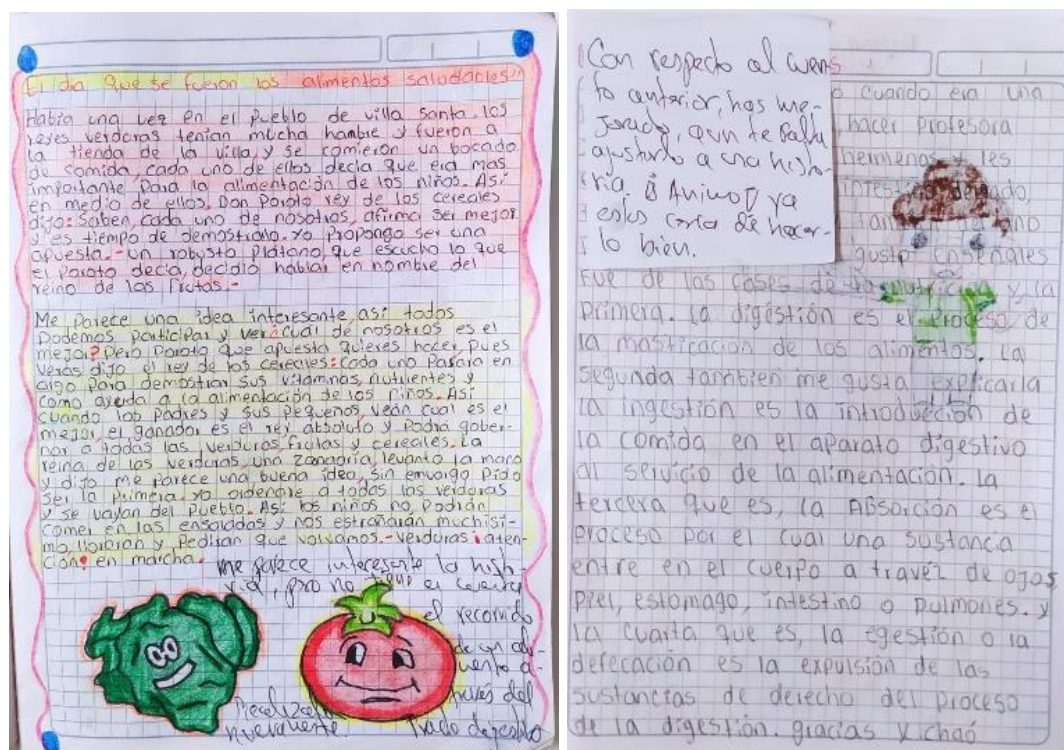 El dia que se fueron los alimentos saludables"
Había una vez en el pueblo de villa santa. los
reyes verduras tenian mucha hambre y fueron a
la tienda de la villa, y se comieron un bocado
de comida, cada uno de ellos decia que era mas
importante para la alimentación de los niños. Así
en medio de ellos. Don Poroto rey de los cereales
dijo: saben, cada uno de nosotros, afirma ser mejor
y es tiempo de demostrarlo. yo propongo ser una
apuesta. - un robusto plátano, que escucho lo que
el poroto decía, decidió hablar en nombre del
reino de las frutas.-
Me parece una idea interesante así todos
podemos participar y ver ¿cuál de nosotros es el
mejor? Pero Poroto que apuesta quieres hacer pues
verás dijo el rey de los cereales: cada uno pasara en
algo para demostrar sus vitaminas, nutrientes y
como ayuda a la alimentación de los niños. Así
cuando los padres y sus pequenos, vean cual es el
mejor, el ganador es el rey absoluto y podrá gober-
nar a todas las verduras, frutas y cereales. La
reina de las verduras, una zanaoria, levanto la mano
y dijo me parece una buena idea, sin envargo pido
ser la primera. yo ordenare a todas las verduras
y se vayan del pueblo. Así los niños no podrán
comer en las ensaladas y nos estrañarán muchisi-
mo, lloraran y pediran que volvamos.- verduras ¡aten-
ción! en marcha.
me parece interesente la histo-
ria, pro no
el recorrido
de un ali-
mento a-
través del
Tracto digestibo
nuevamente.
Con respecto al cuen-
to anterior, has me-
jorado, aun te falta
ajustarlo a una histo-
ria. ¡Animo! ya
estas cerca de hacer-
lo bien.
o cuando era una
, hacer profesora
les
intestino delgado,
gusto enseñales
fue de las fases de la nutrición y la
primera. la digestión es el proceso de
la masticación de los alimentos. la
segunda tanbien me gusta explicarla
la ingestión es la introducción de
la comida en el aparato digestivo
al servicio de la alimentación. la
tercera que es, la ABSorción es el
proceso por el cual una sustancia
entre en el cuerpo a travéz de ojos
piel, estomago, intestino o pulmones. y
la cuarta que es, la egestión o la
defecación es la expulsión de las
sustancias de derecho del proceso
de la digestión. gracias y chao